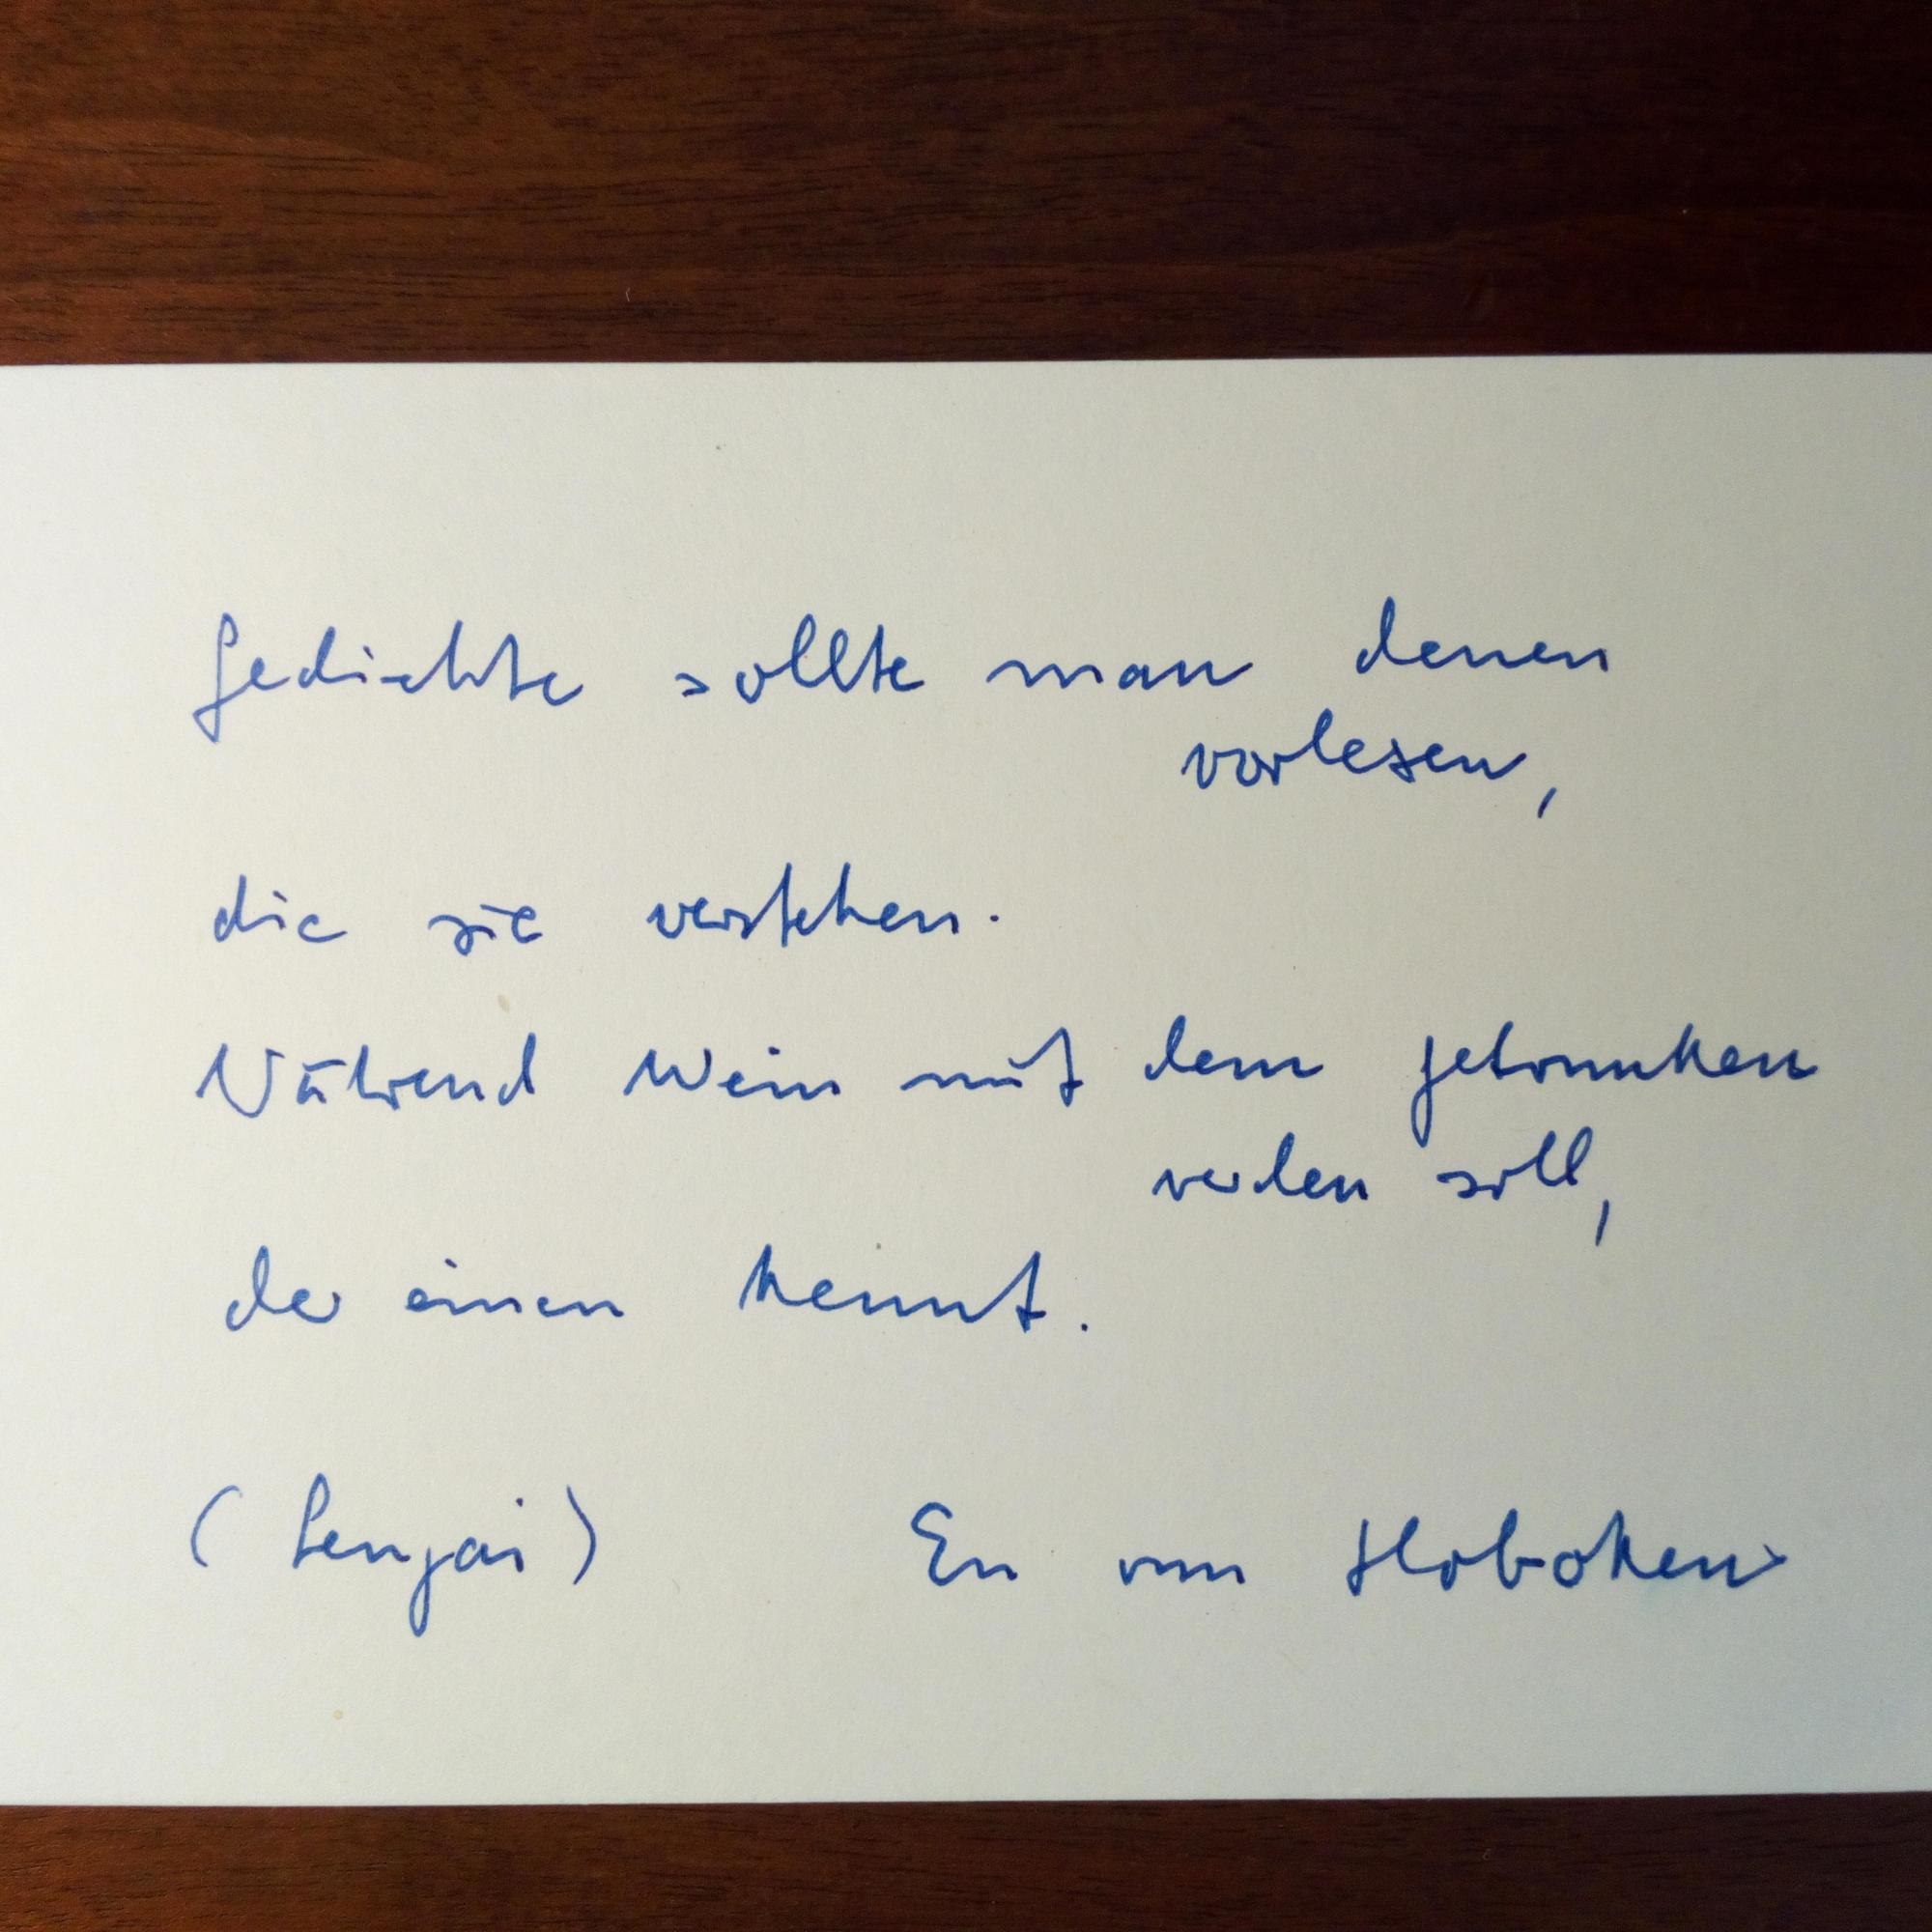 Gedichte sollte man denen
vorlesen,
die sie verstehen.
Während Wein mit dem getrunken
werden soll,
der einen kennt.
(Sengai) En van Hoboken